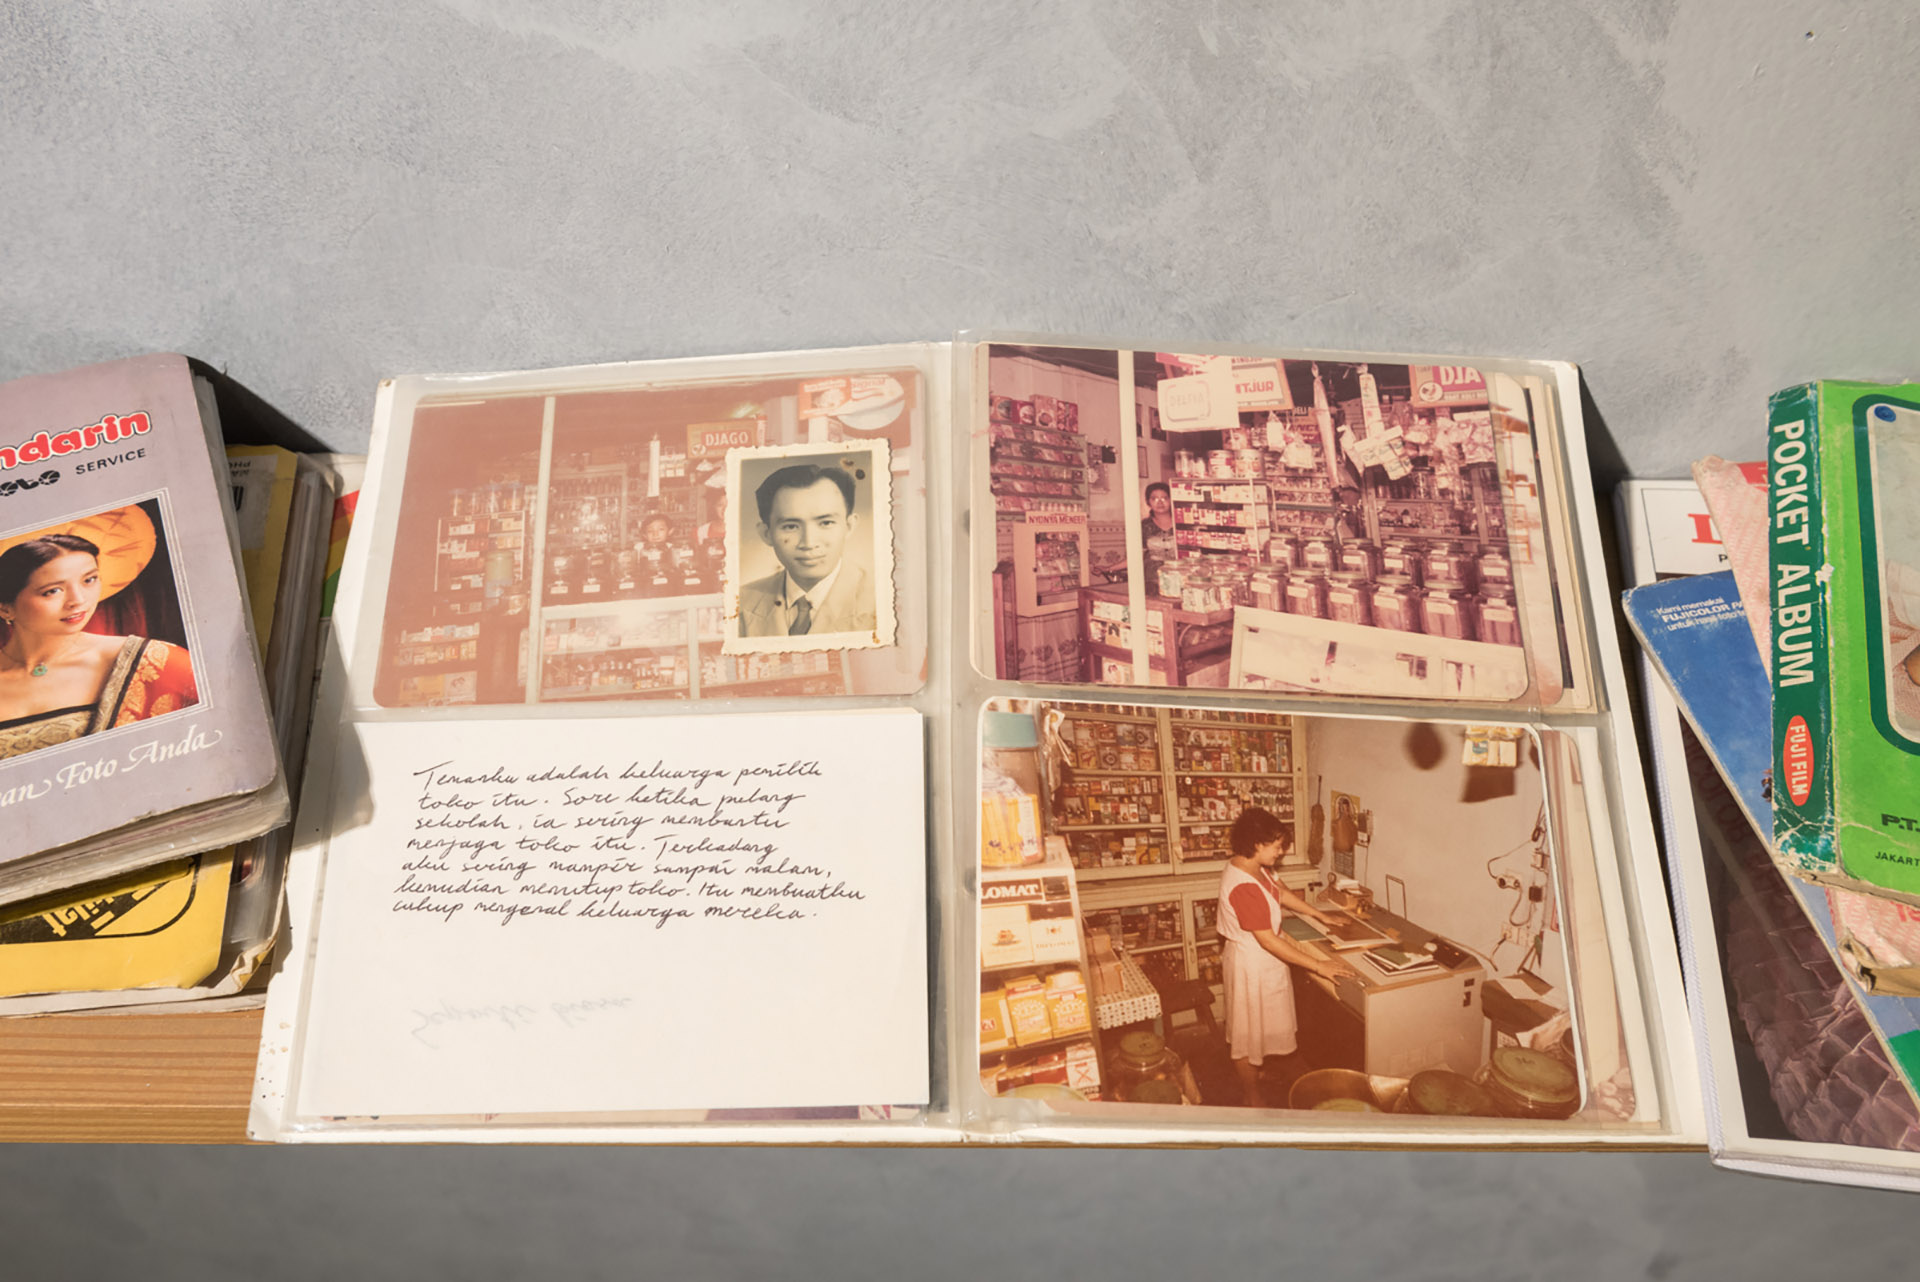 ndarin
oto SERVICE
an Foto Anda
DJAGO
DELTA
NTJUR
DJA
NYONYA MENEER
Temanku adalah keluarga pemilik
toko itu. Sore ketika pulang
sekolah, ia sering membantu
menjaga toko itu. Terkadang
aku sering mampir sampai malam,
kemudian menutup toko. Itu membuatku
cukup mengenal keluarga mereka.
LOMAT
Kami memakai
FUJICOLOR PA
untuk hasil foto
POCKET ALBUM
FUJI FILM
P.T.
JAKART